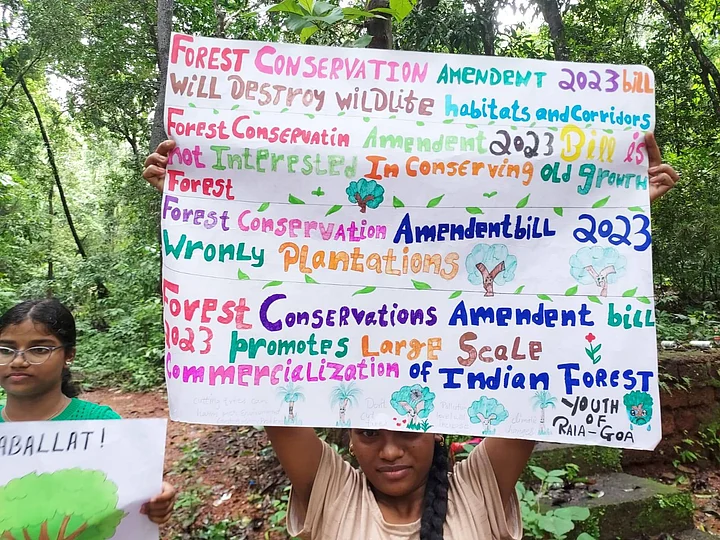 FOREST CONSERVATION AMENDENT 2023 bill
will DESTROY wildlife habitats and Corridors
Forest Conservatin Amendent 2023 Bill is
not Interested In Conserving old growth
Forest
Forest Conservation Amendent bill 2023
Wronly Plantations
Forest Conservations Amendent bill
2023 promotes Large Scale
Commercialization of Indian FOREST
-YOUTH
OF
RAIA-GOA
ABALLAT!